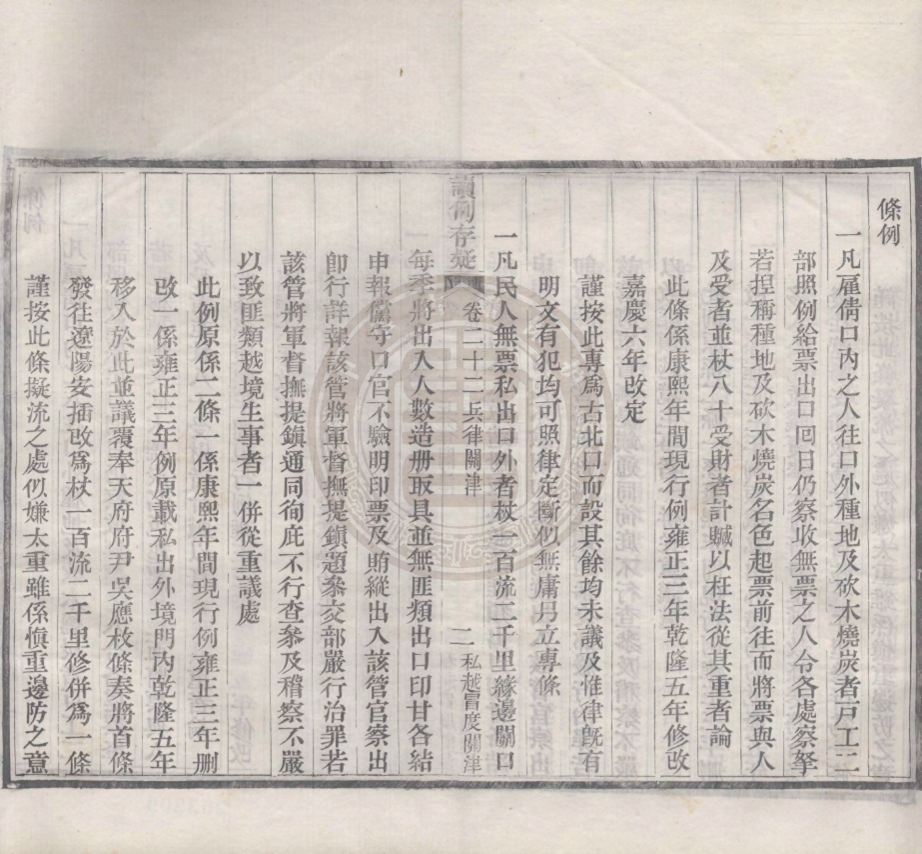 條例
一凡雇倩口內之人往口外種地及砍木燒炭者戸工二
部照例給票出口回日仍察收無票之人令各處察拏
若揑稱種地及砍木燒炭名色起票前往而將票與人
及受者並杖八十受財者計贓以枉法從其重者論
此條係康熙年間現行例雍正三年乾隆五年修改
嘉慶六年改定
謹按此專爲古北口而設其餘均未議及惟律旣有
明文有犯均可照律定斷似無庸另立專條
一凡民人無票私出口外者杖一百流二千里緣邊關口
讀例存疑 卷二十二兵律關津 二 私越冒度關津
每季將出入人數造册取具並無匪類出口印甘各結
申報儻守口官不驗明印票及賄縱出入該管官察出
卽行詳報該管將軍督撫提鎮題參交部嚴行治罪若
該管將軍督撫提鎮通同徇庇不行查參及稽察不嚴
以致匪類越境生事者一併從重議處
此例原係二條一係康熙年間現行例雍正三年删
改一係雍正三年例原載私出外境門內乾隆五年
移入於此並議覆奉天府府尹吳應枚條奏將首條
發往遼陽安插改爲杖一百流二千里修併爲一條
謹按此條擬流之處似嫌太重雖係愼重邊防之意